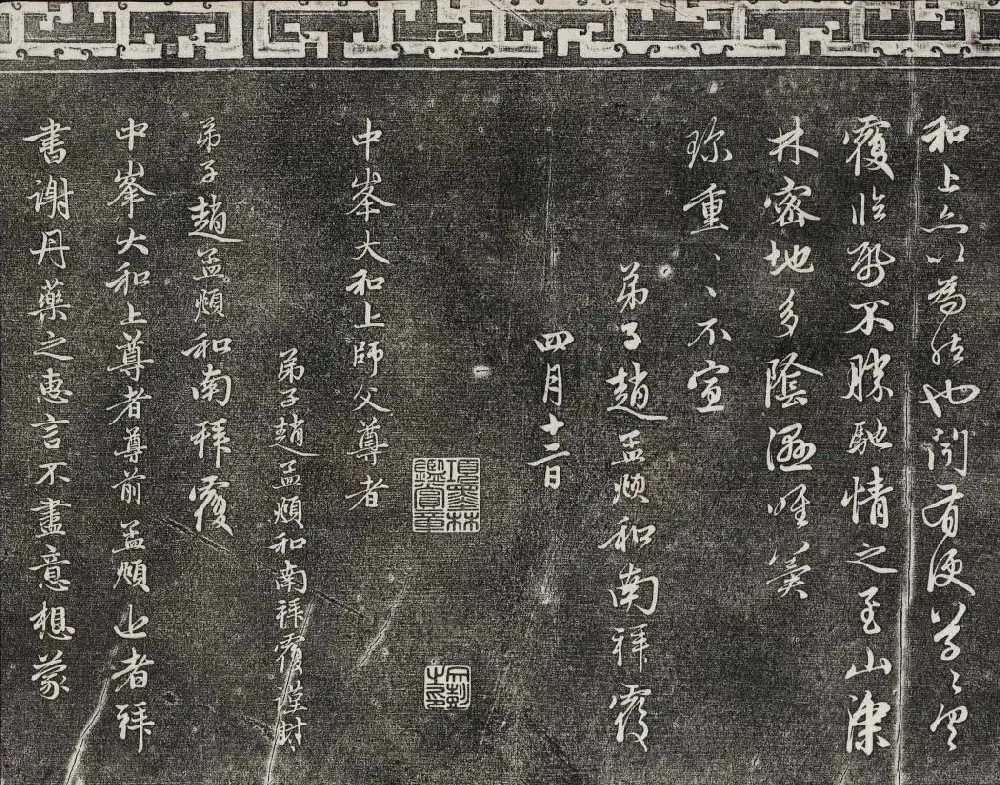 和上亦以為然也聞有便草々具
覆臨紙不勝馳情之至山深
林密地多陰濕唯冀
珍重、、不宣
弟子趙孟頫和南拜覆
四月十二日
中峯大和上師父尊者
弟子趙孟頫和南拜覆謹封
弟子趙孟頫和南拜覆
中峯大和上尊者尊前孟頫上者拜
書謝丹藥之惠言不盡意想蒙